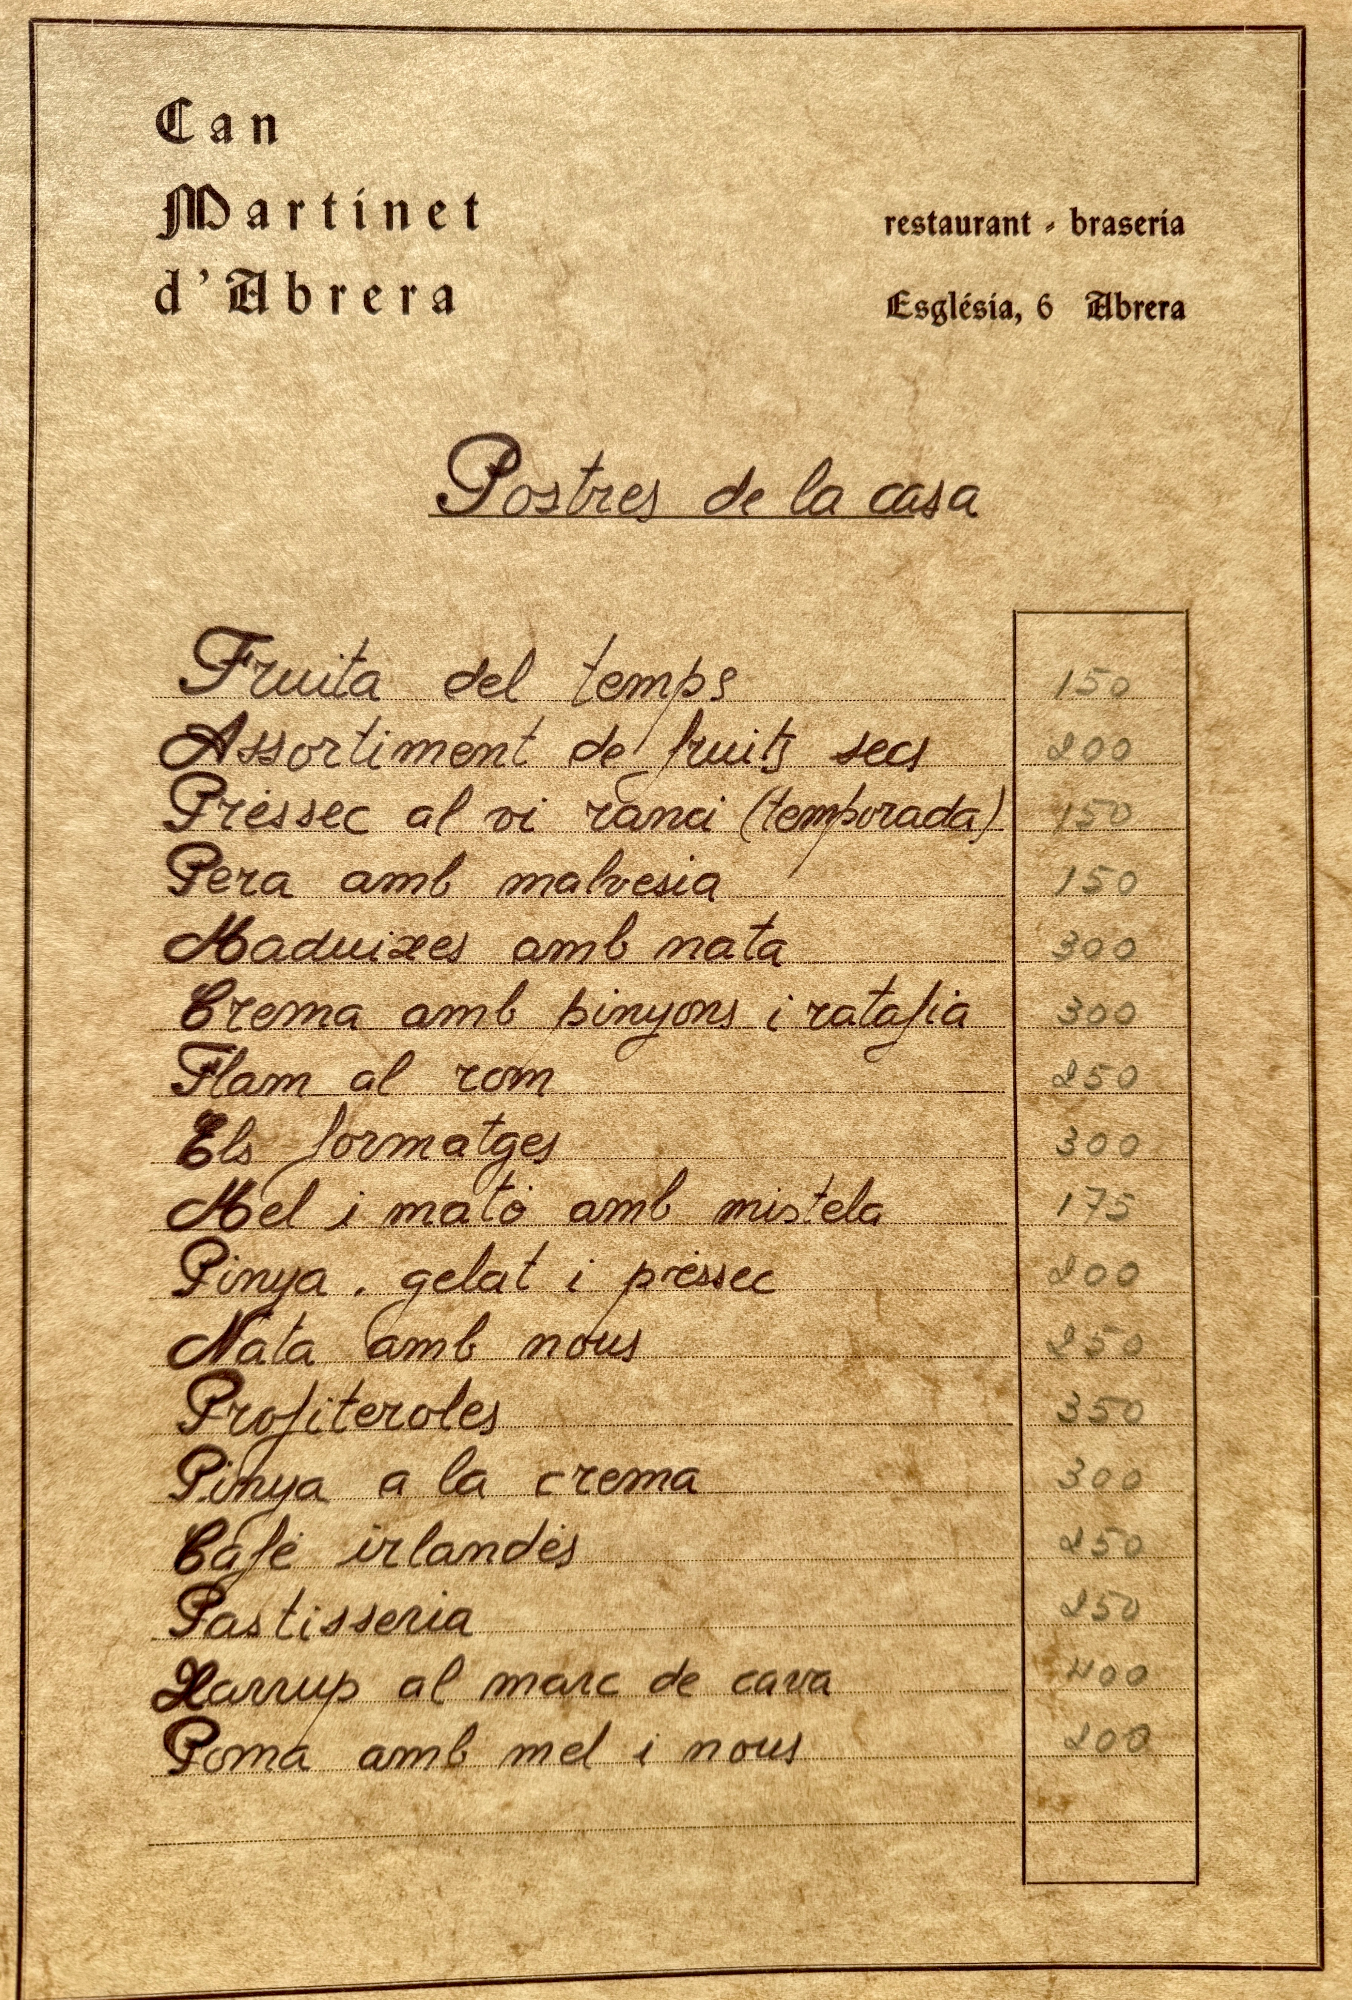 Can
Martinet
d'Abrera
restaurant - braseria
Església, 6 Abrera
Postres de la casa
Fruita del temps 150
Assortiment de fruits secs 200
Préssec al vi ranci (temporada) 150
Pera amb malvesia 150
Maduixes amb nata 300
Crema amb pinyons i ratafia 300
Flam al rom 250
Els formatges 300
Mel i mató amb mistela 175
Pinya, gelat i préssec 200
Nata amb nous 250
Profiteroles 350
Pinya a la crema 300
Café irlandés 250
Pastisseria 250
Xarrup al marc de cava 400
Poma amb mel i nous 200